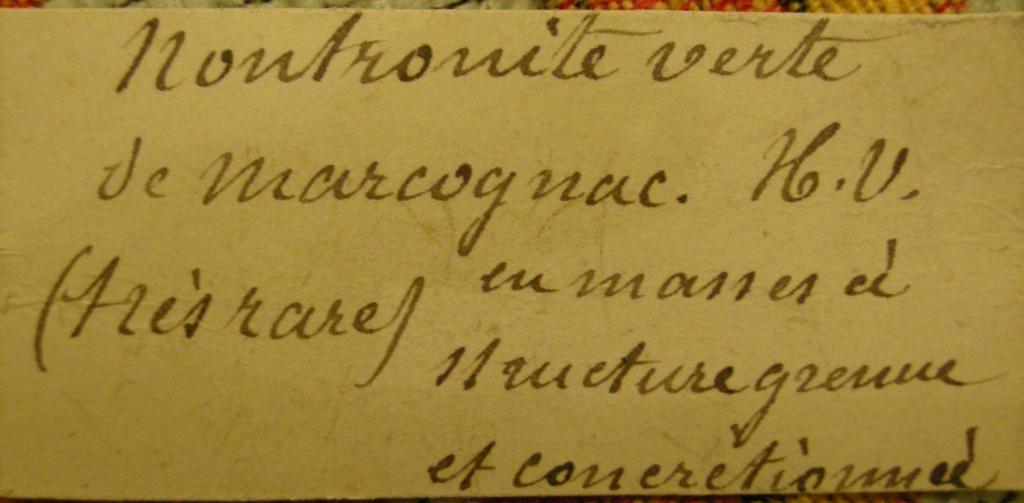 Nontronite verte
de Marcognac. H.V.
(très rare) en masses à
structure grenue
et concrétionnée